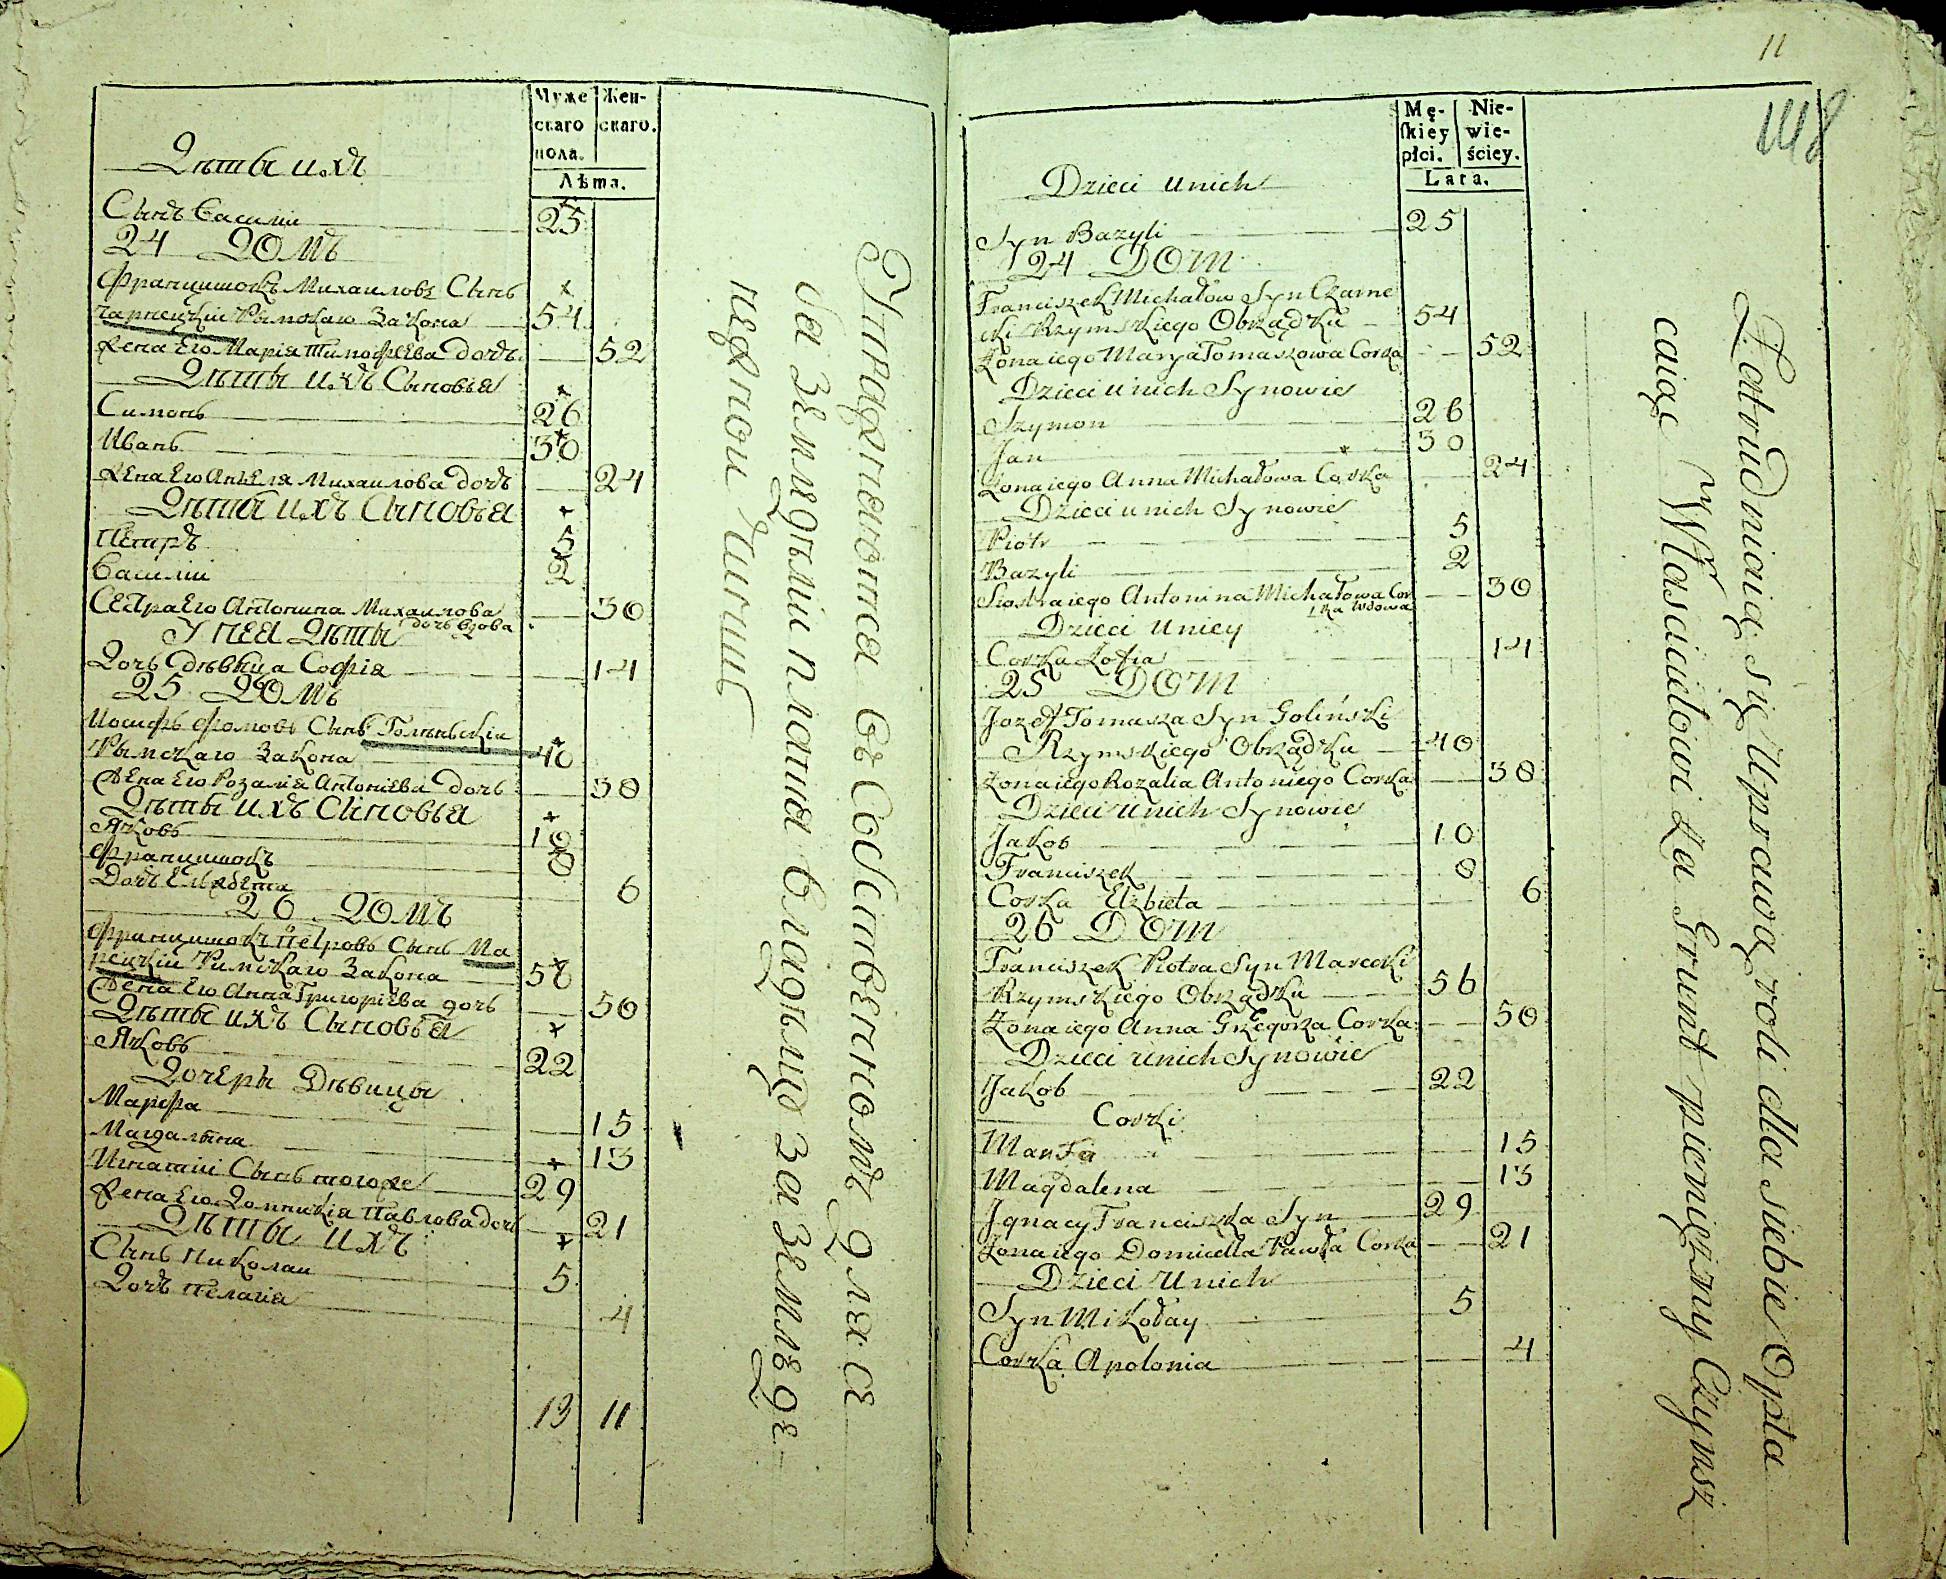 Муже
скаго
пола.
Жен-
скаго.
Лѣта.
Дѣты ихъ
Сынъ Василiи 25
24 ДОМЪ
Францишокъ Михаиловъ Сынъ
Чарнецкiи Рымскаго Закона 54
Жена Его Марiя Тимофѣева дочъ 52
Дѣты ихъ Сыновья
Симонъ 26
Иванъ 30
Жена Его Анеля Михаилова дочъ 24
Дѣты ихъ Сыновья
Петръ 5
Василiи 2
Сестра Его Антонина Михаилова 30
дочъ вдова
У нея Дѣты
Дочъ дѣвица Софiя 14
25 ДОМЪ
Иосифъ Фомовъ Сынъ Голыньскiи
Рымскаго Закона 40
Жена Его Розалiя Антонiева дочъ 38
Дѣты ихъ Сыновья
Яковъ 10
Францишокъ 8
Дочъ Ельжбета 6
26 ДОМЪ
Францишокъ Петровъ Сынъ Ма
рецкiи Римскаго Закона 56
Жена Его Анна Григорiева дочъ 50
Дѣты ихъ Сыновья
Яковъ 22
Дочеры Дѣвицы
Марфа 15
Магдалына 13
Игнатiи Сынъ тогоже 29
Жена Его Домицкiя Павлова дочъ 21
Дѣты ихъ
Сынъ Николаи 5
Дочъ Пелагiя 4
13 11
Упражненются въ Собственномъ для се
бя Земледѣлiи платя владѣлцу за Землю де
нежнои Чиншъ
11
148
Mę-
ſkiey
płci.
Nie-
wie-
ściey.
Lata.
Dzieci u nich
Syn Bazyli 25
24 DOM
Franciszek Michałow Syn Czarne
cki Rzymskiego Obrządku 54
Żona iego Marya Tomaszowa Corka 52
Dzieci u nich Synowie
Szymon 26
Jan 30
Żona iego Anna Michałowa Corka 24
Dzieci u nich Synowie
Piotr 5
Bazyli 2
Siostra iego Antonina Michałowa Cor 30
ka wdowa
Dzieci u niey
Corka Zofia 14
25 DOM
Jozef Tomasza Syn Goliński
Rzymskiego Obrządku 40
Żona iego Rozalia Antoniego Corka 38
Dzieci u nich Synowie
Jakob 10
Franciszek 8
Corka Elżbieta 6
26 DOM
Franciszek Piotra Syn Marecki
Rzymskiego Obrządku 56
Żona iego Anna Grzegorza Corka 50
Dzieci u nich Synowie
Jakob 22
Corki
Marfa 15
Magdalena 13
Jgnacy Franciszka Syn 29
Żona iego Domicella Pawła Corka 21
Dzieci u nich
Syn Mikołay 5
Corka Apolonia 4
Zatrudniaią się Uprawą roli dla siebie Opła
caiąc Właścicielowi za Grunt pieniężny Czynsz